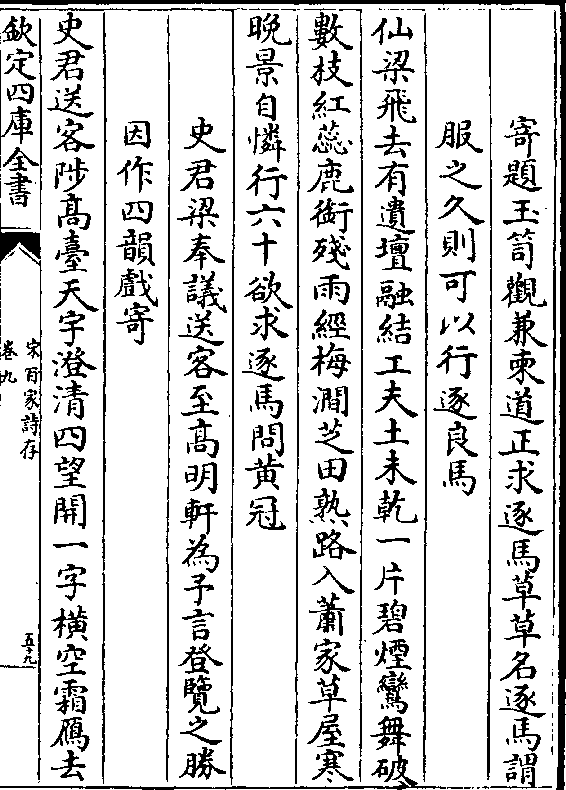 寄題玉笥觀兼柬道正求逐馬草草名逐馬謂
服之久則可以行逐良馬
仙梁飛去有遺壇融結工夫土未乾一片碧煙鸞舞破
數枝紅蕊鹿銜殘雨經梅澗芝田熟路入蕭家草屋寒
晚景自憐行六十欲求逐馬問黄冠
史君梁奉議送客至髙明軒為予言登覽之勝
因作四韻戲寄
史君送客陟髙臺天宇澄清四望開一字橫空霜鴈去
欽定四庫全書
宋百家詩存
卷九
五十九